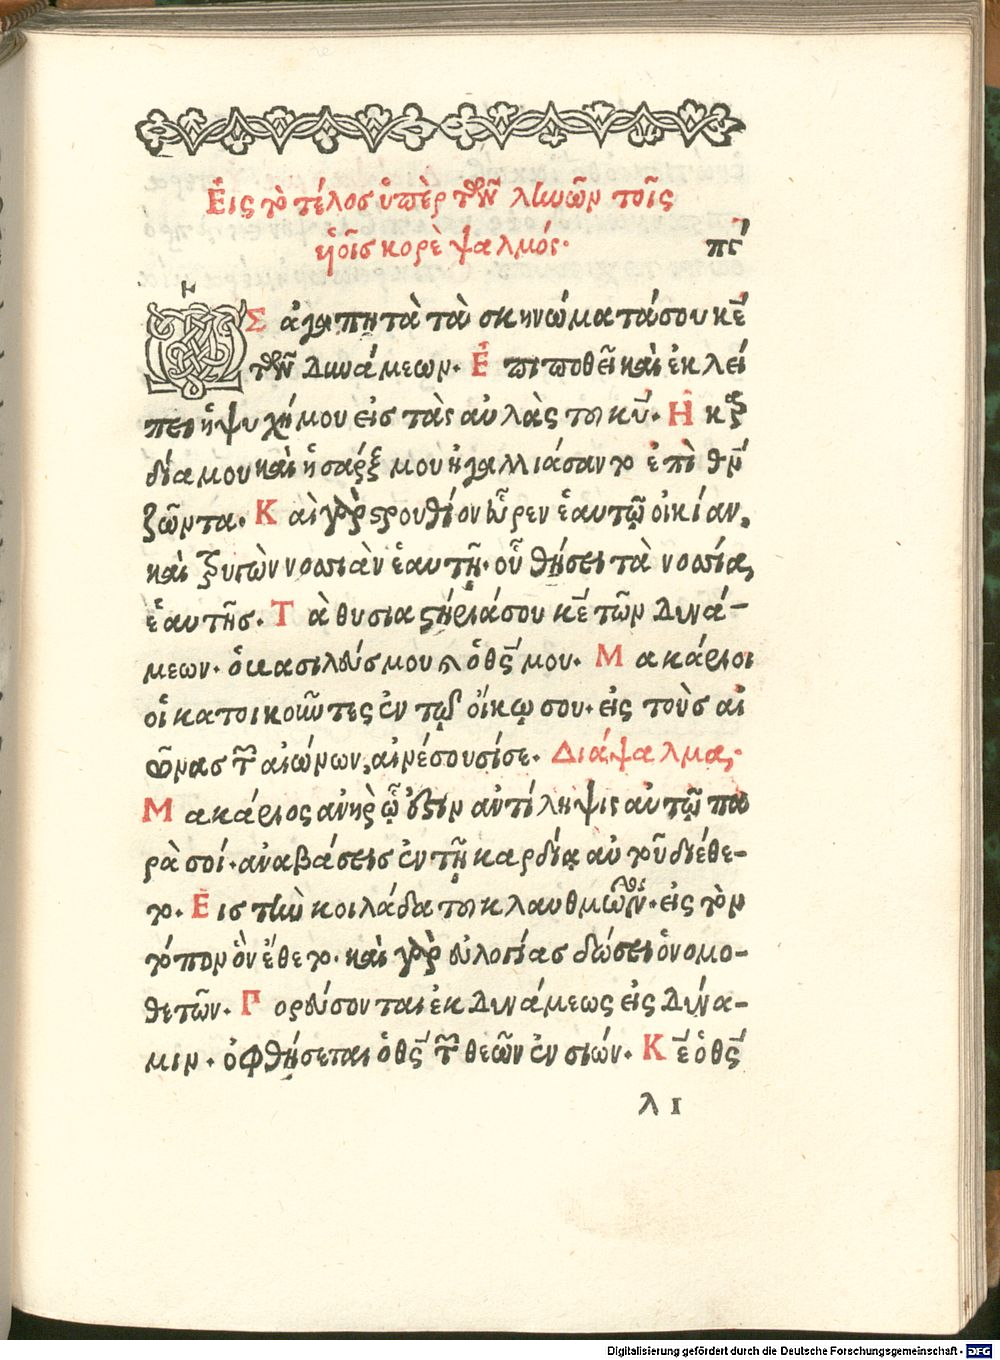 Εἰς τὸ τέλος ὑπὲρ τῶν ληνῶν τοῖς
ὑοῖς κορὲ ψαλμός· πγ
ΩΣ ἀγαπητὰ τὰ σκηνώματά σου κε
τῶν δυνάμεων· Ἐπιποθεῖ καὶ ἐκλεί
πει ἡ ψυχή μου εἰς τὰς αὐλὰς του κυ· Ἡ καρ
δία μου καὶ ἡ σάρξ μου ἠγαλλιάσαντο ἐπὶ θν
ζῶντα· Καὶ γὰρ στρουθίον εὗρεν ἑαυτῷ οἰκίαν,
καὶ τρυγὼν νοσσιὰν ἑαυτῇ· οὗ θήσει τὰ νοσσία,
ἑαυτῆς· Τὰ θυσιαστήριά σου κε τῶν δυνά-
μεων· ὁ βασιλεύς μου καὶ ὁ θς μου· Μακάριοι
οἱ κατοικοῦντες ἐν τῷ οἴκῳ σου· εἰς τοὺς αἰ
ῶνας τῶν αἰώνων, αἰνέσουσί σε· Διάψαλμα,·
Μακάριος ἀνὴρ ᾧ ἐστιν ἀντίληψις αὐτῷ πα
ρὰ σοί· ἀναβάσεις ἐν τῇ καρδίᾳ αὐτοῦ διέθε-
το· Εἰς τὴν κοιλάδα του κλαυθμῶνος· εἰς τὸν
τόπον ὃν ἔθετο· καὶ γὰρ εὐλογίας δώσει ὁ νομο-
θετῶν· Πορεύσονται ἐκ δυνάμεως εἰς δύνα-
μιν· ὀφθήσεται ὁ θς τῶν θεῶν ἐν σιών· Κε ὁ θς
λ ι
Digitalisierung gefördert durch die Deutsche Forschungsgemeinschaft · DFG